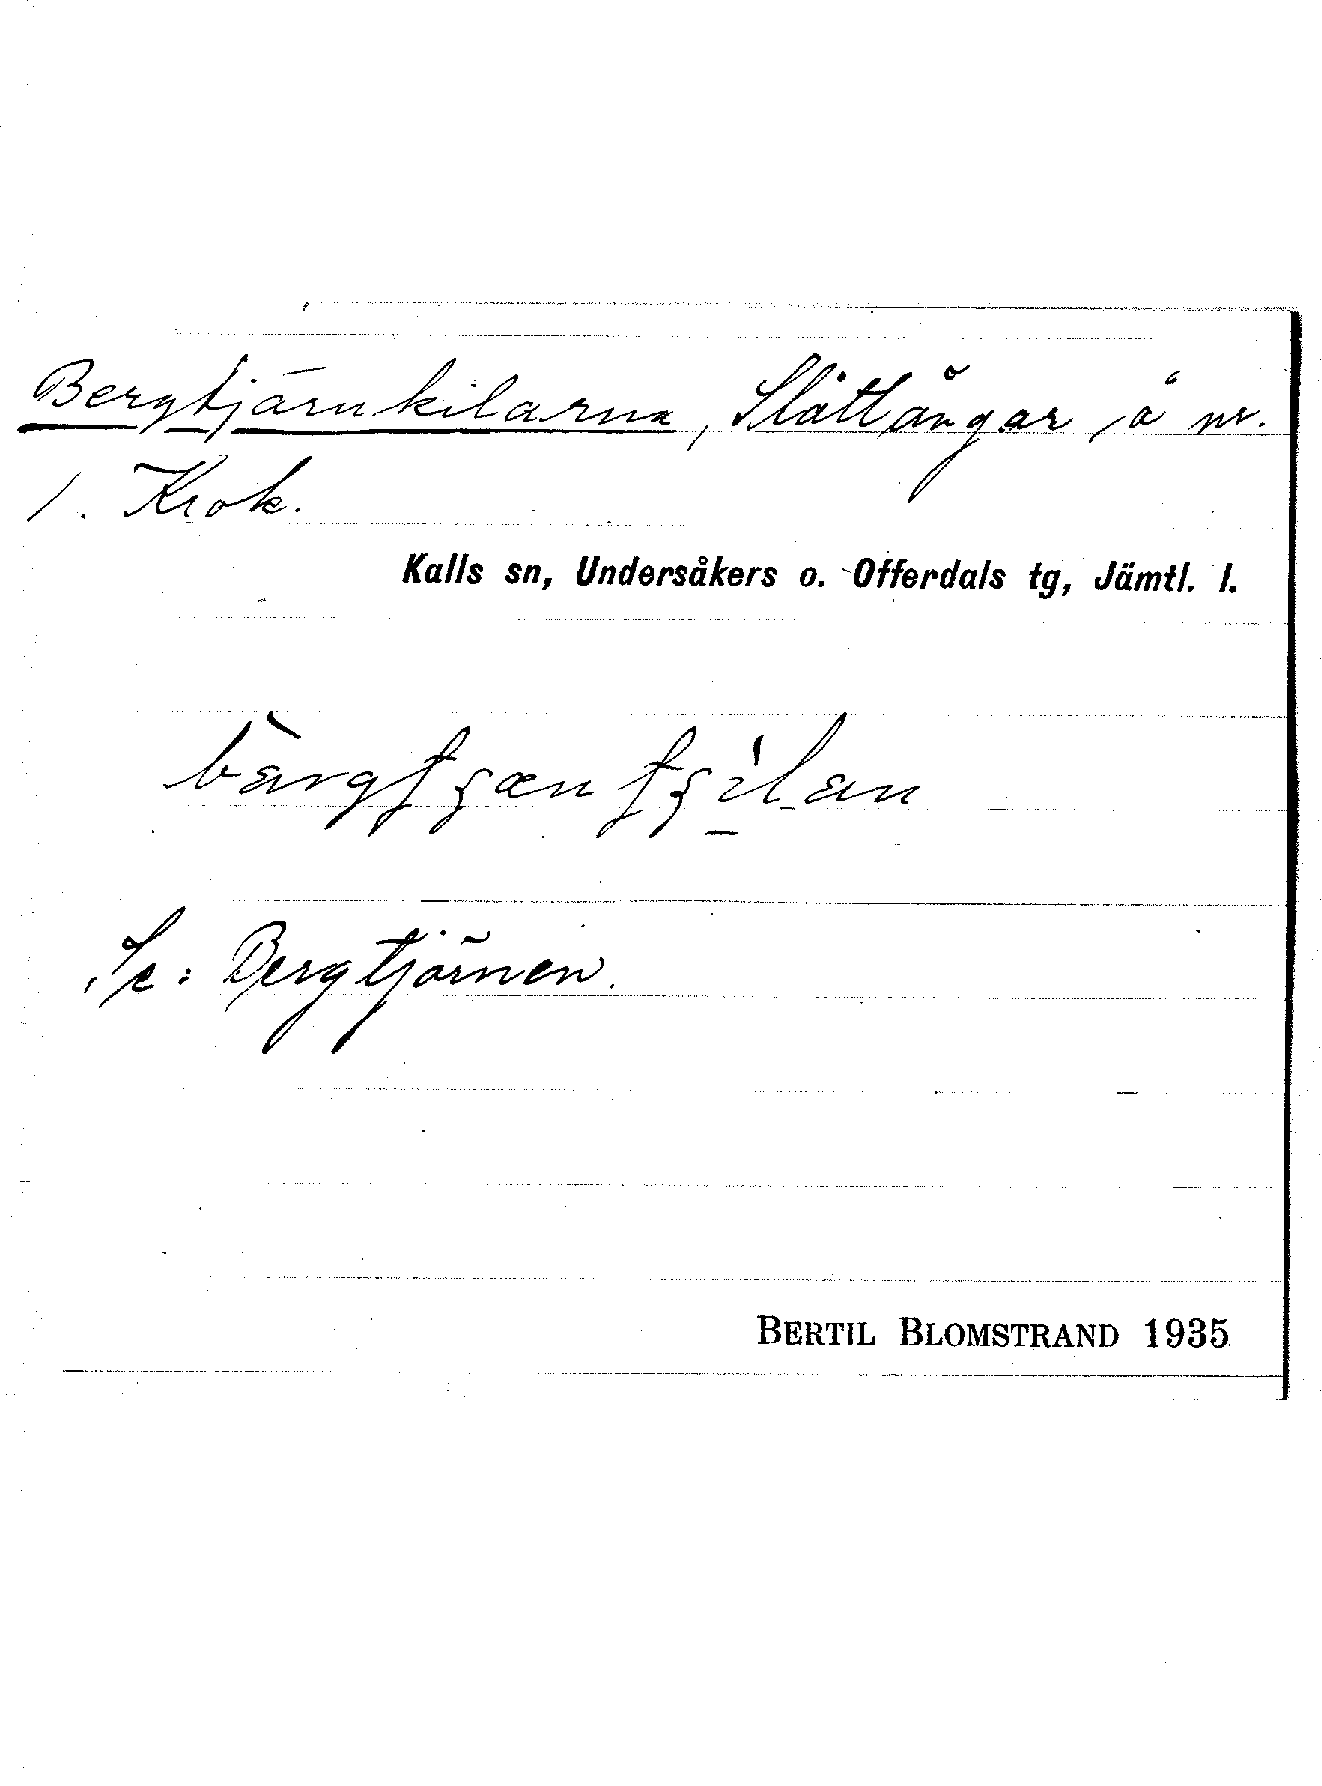 Bergtjärnkilarna, Slåttängar å nr.
1. Krok.
Kalls sn, Undersåkers o. Offerdals tg, Jämtl. l.
Se: Bergtjärnen.
BERTIL BLOMSTRAND 1935